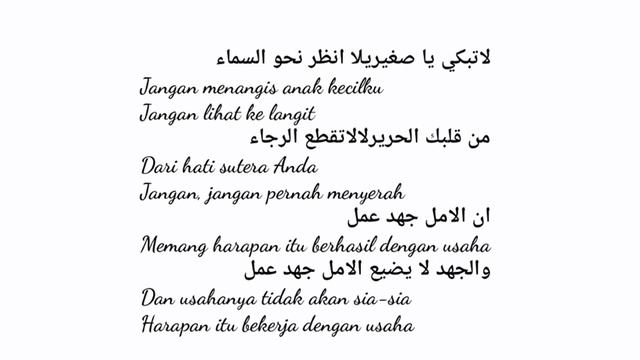 لاتبكي يا صغيريلا انظر نحو السماء
Jangan menangis anak kecilku
Jangan lihat ke langit
من قلبك الحريرلالاتقطع الرجاء
Dari hati sutera Anda
Jangan, jangan pernah menyerah
ان الامل جهد عمل
Memang harapan itu berhasil dengan usaha
والجهد لا يضيع الامل جهد عمل
Dan usahanya tidak akan sia-sia
Harapan itu bekerja dengan usaha